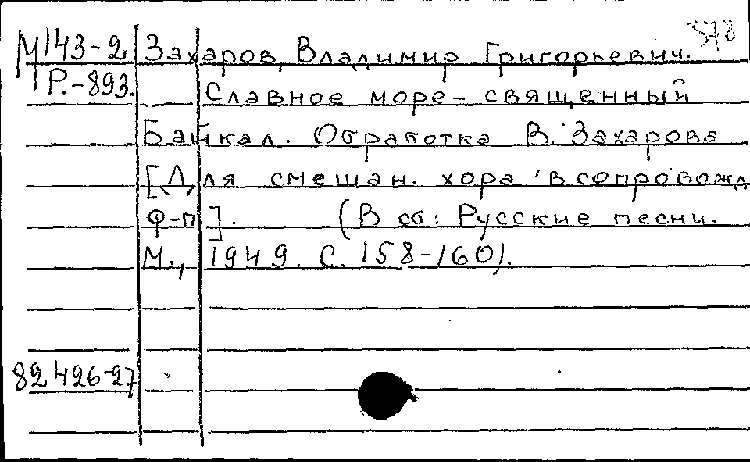 578
М143-2 Захаров, Владимир Григорьевич.
Р.-893. Славное море - священный
Байкал. Обработка В. Захарова
[Для смешан. хора в сопровожд
ф-п]. (В сб: Русские песни.
М., 1949. С. 158-160).
82426-27